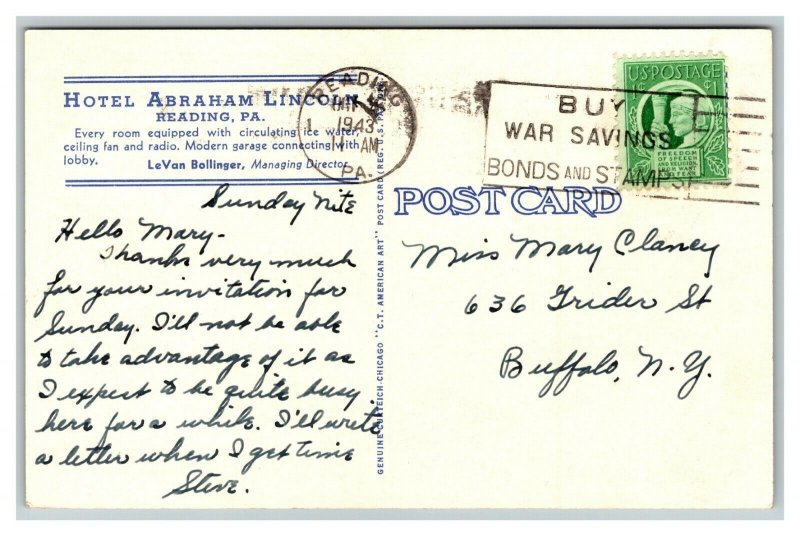 HOTEL ABRAHAM LINCOLN
READING, PA.
Every room equipped with circulating ice water,
ceiling fan and radio. Modern garage connecting with
lobby.
LeVan Bollinger, Managing Director
READING
1943
11 AM
PA.
BUY
WAR SAVINGS
BONDS AND STAMPS
U.S. POSTAGE
1¢
FREEDOM
OF SPEECH
AND RELIGION,
FROM WANT
AND FEAR
POST CARD
GENUINE CURTEICH-CHICAGO "C.T. AMERICAN ART" POST CARD (REG. U.S. PAT. OFF.)
Sunday Nite
Hello Mary-
Thanks very much
for your invitation for
Sunday. I'll not be able
to take advantage of it as
I expect to be quite busy
here for a while. I'll write
a letter when I get time
Steve.
Miss Mary Clancy
636 Grider St
Buffalo, N.Y.